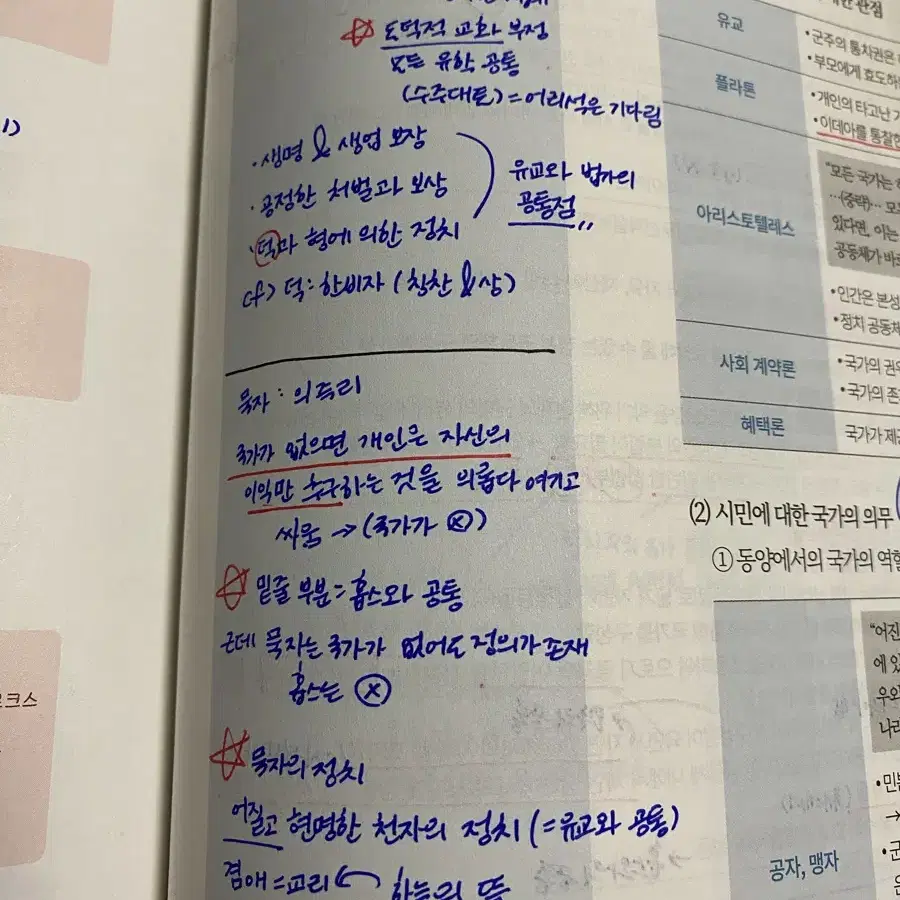 ☆ 도덕적 교화 부정
모든 유학 공통
(수주대토) = 어리석은 기다림
· 생명 & 생업 보장
· 공정한 처벌과 보상
· 덕과 형에 의한 정치
유교와 법가의
공통점 〃
cf) 덕: 한비자 (칭찬 & 상)
묵자 : 의 득리
국가가 없으면 개인은 자신의
이익만 추구하는 것을 의롭다 여기고
싸움 → (국가가 ⓧ)
☆ 밑줄 부분 = 홉스와 공통
근데 묵자는 국가가 없어도 정의가 존재
홉스는 ⓧ
☆ 묵자의 정치
어질고 현명한 천자의 정치 (= 유교와 공통)
겸애 = 교리 ← 하늘의 뜻
관점
유교
• 군주의 통치권은
• 부모에게 효도하
플라톤
• 개인의 타고난
• 이데아를 통찰한
아리스토텔레스
"모든 국가는
…(중략)… 모
있다면, 이는
공동체가 바로
• 인간은 본성
• 정치 공동체
사회 계약론
• 국가의 권위
• 국가의 존
혜택론
국가가 제공
(2) 시민에 대한 국가의 의무
① 동양에서의 국가의 역할
공자, 맹자
"어진
에 있
우와
나라
• 민본
→
• 군
은
르크스